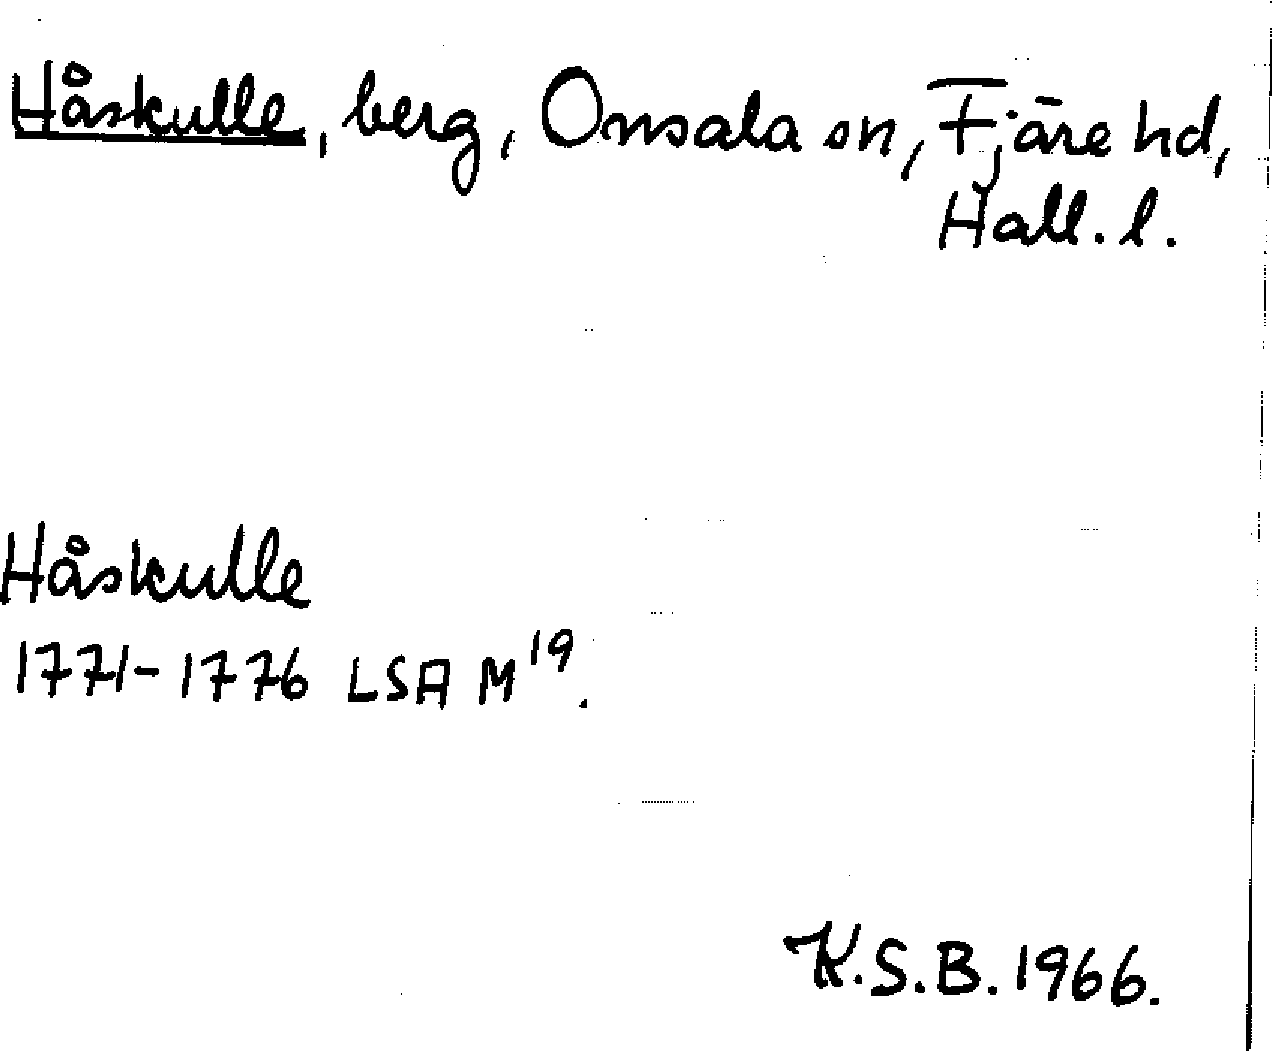 Håskulle, berg, Onsala sn, Fjäre hd,
Hall. l.
Håskulle
1771-1776 LSA M¹⁹.
K.S.B. 1966.